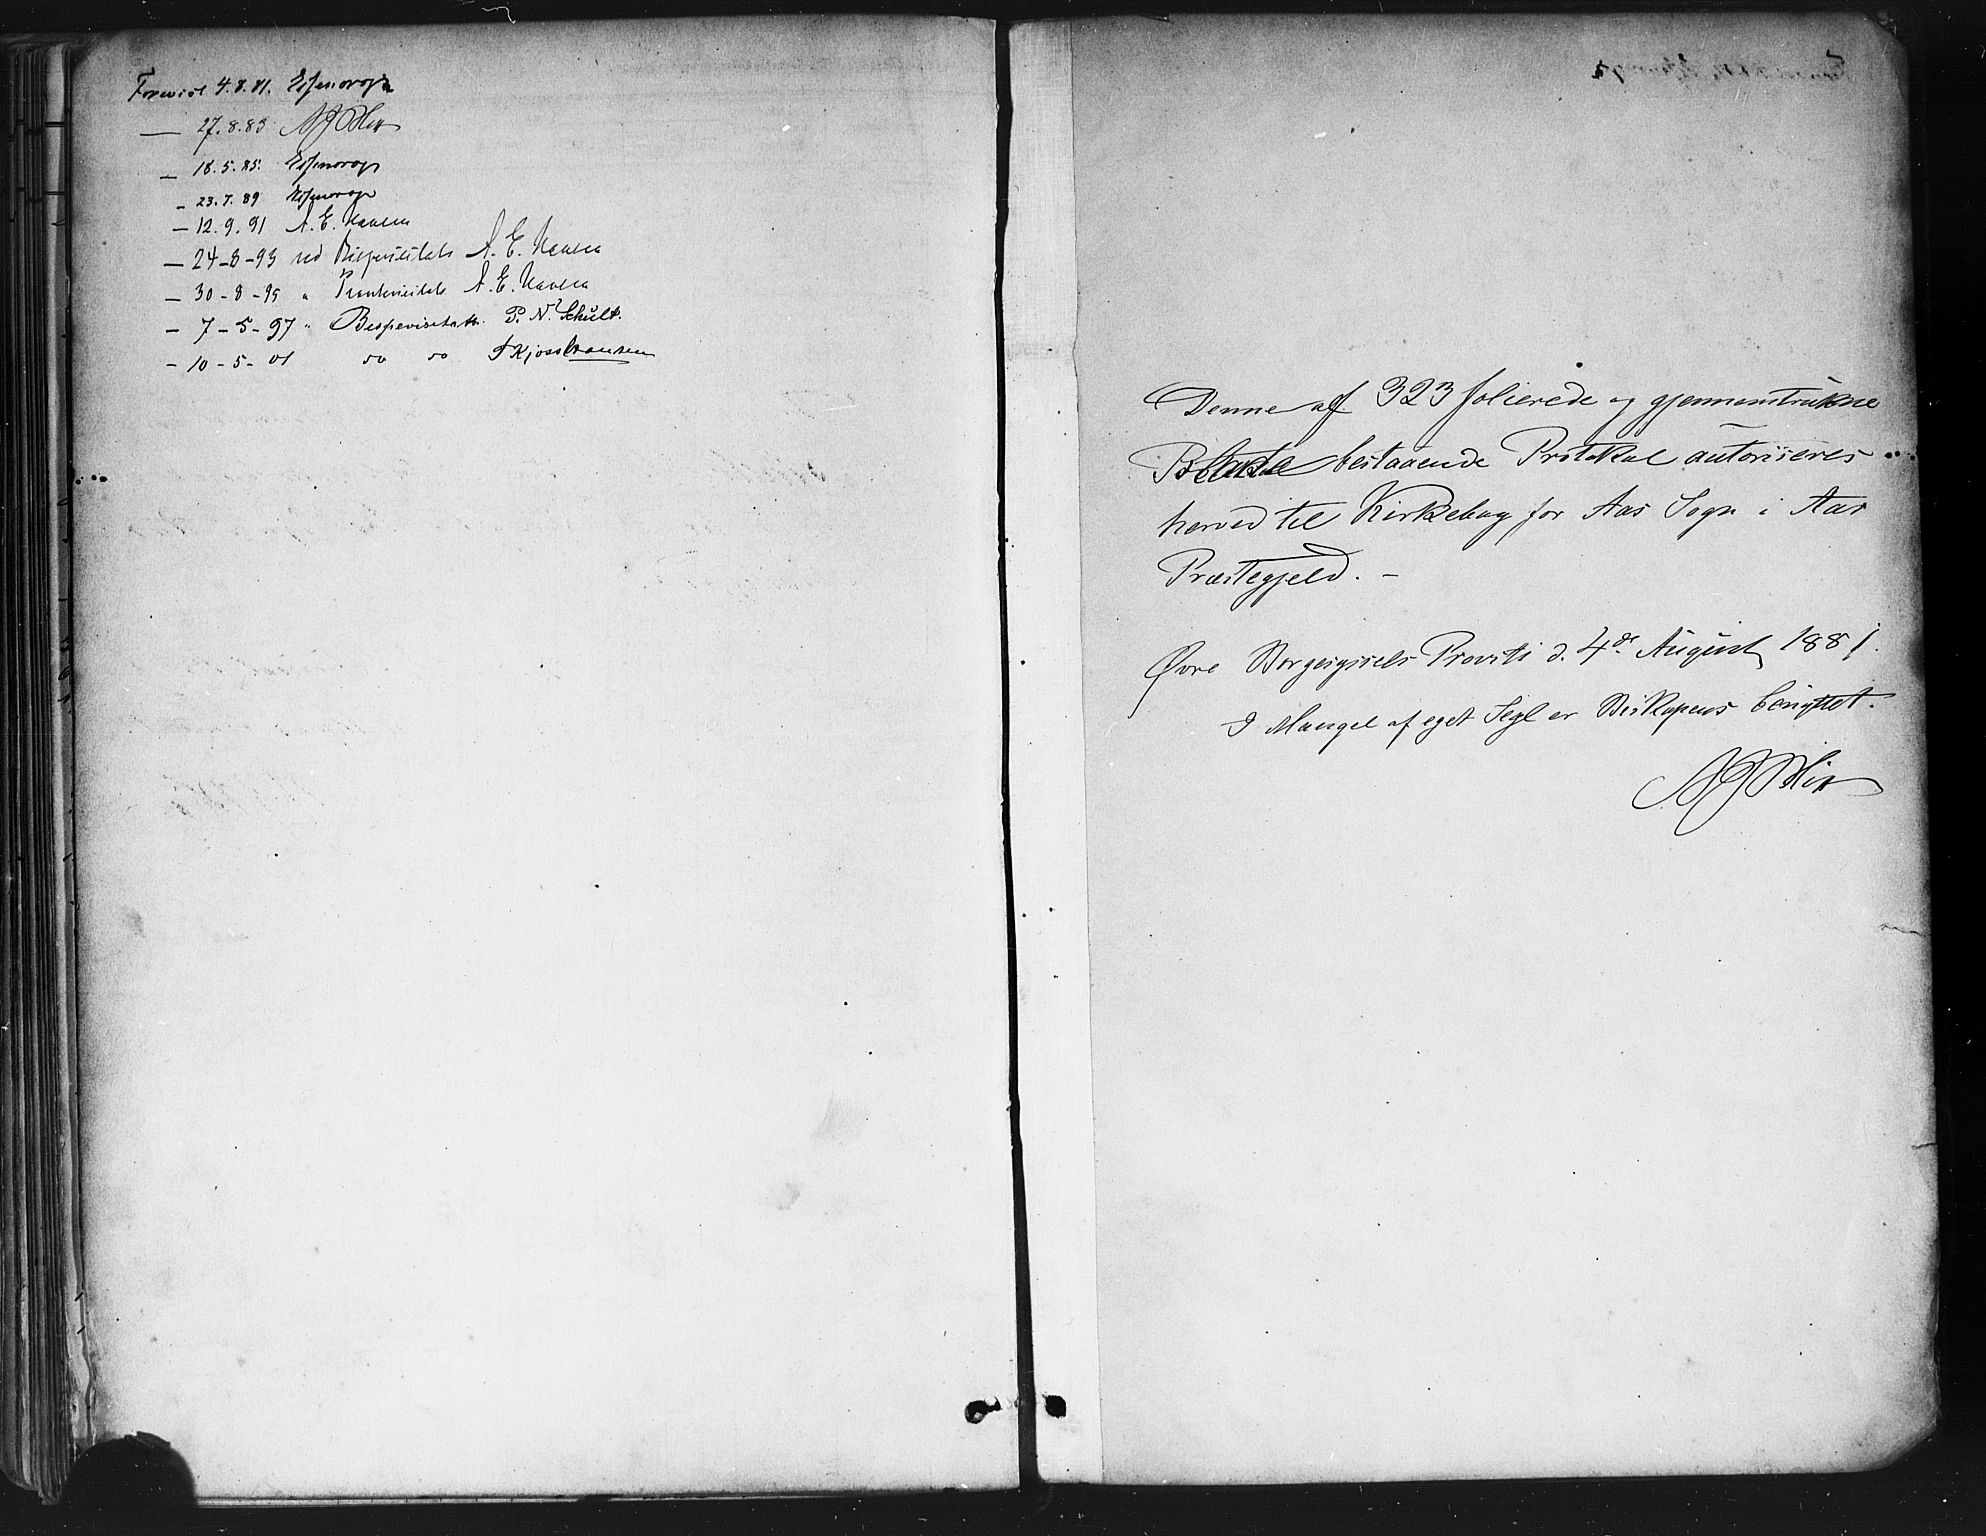 Forevist 4.8.81. Essendrop
— 27.8.83 A J Blix
— 18.5.85. Essendrop
— 23.7.89 Essendrop
— 12.9.91 A. E. Hansen
— 24-8-93 ved Bispevisitats A. E. Hansen
— 30-8-95 " Provstevisitats A. E. Hansen
— 7-5-97 " Bispevisitats. P. N. Schult.
— 10-5-01 do do Kjoss Hansen
Denne af 323 folierede og gjennemtrukne
Blade bestaaende Protokol autoriseres
herved til Kirkebog for Aas Sogn i Aas
Præstegjeld. —
Øvre Borgesyssels Provsti d. 4de August 1881.
I Mangel af eget Segl er Biskopens benyttet.
A J Blix